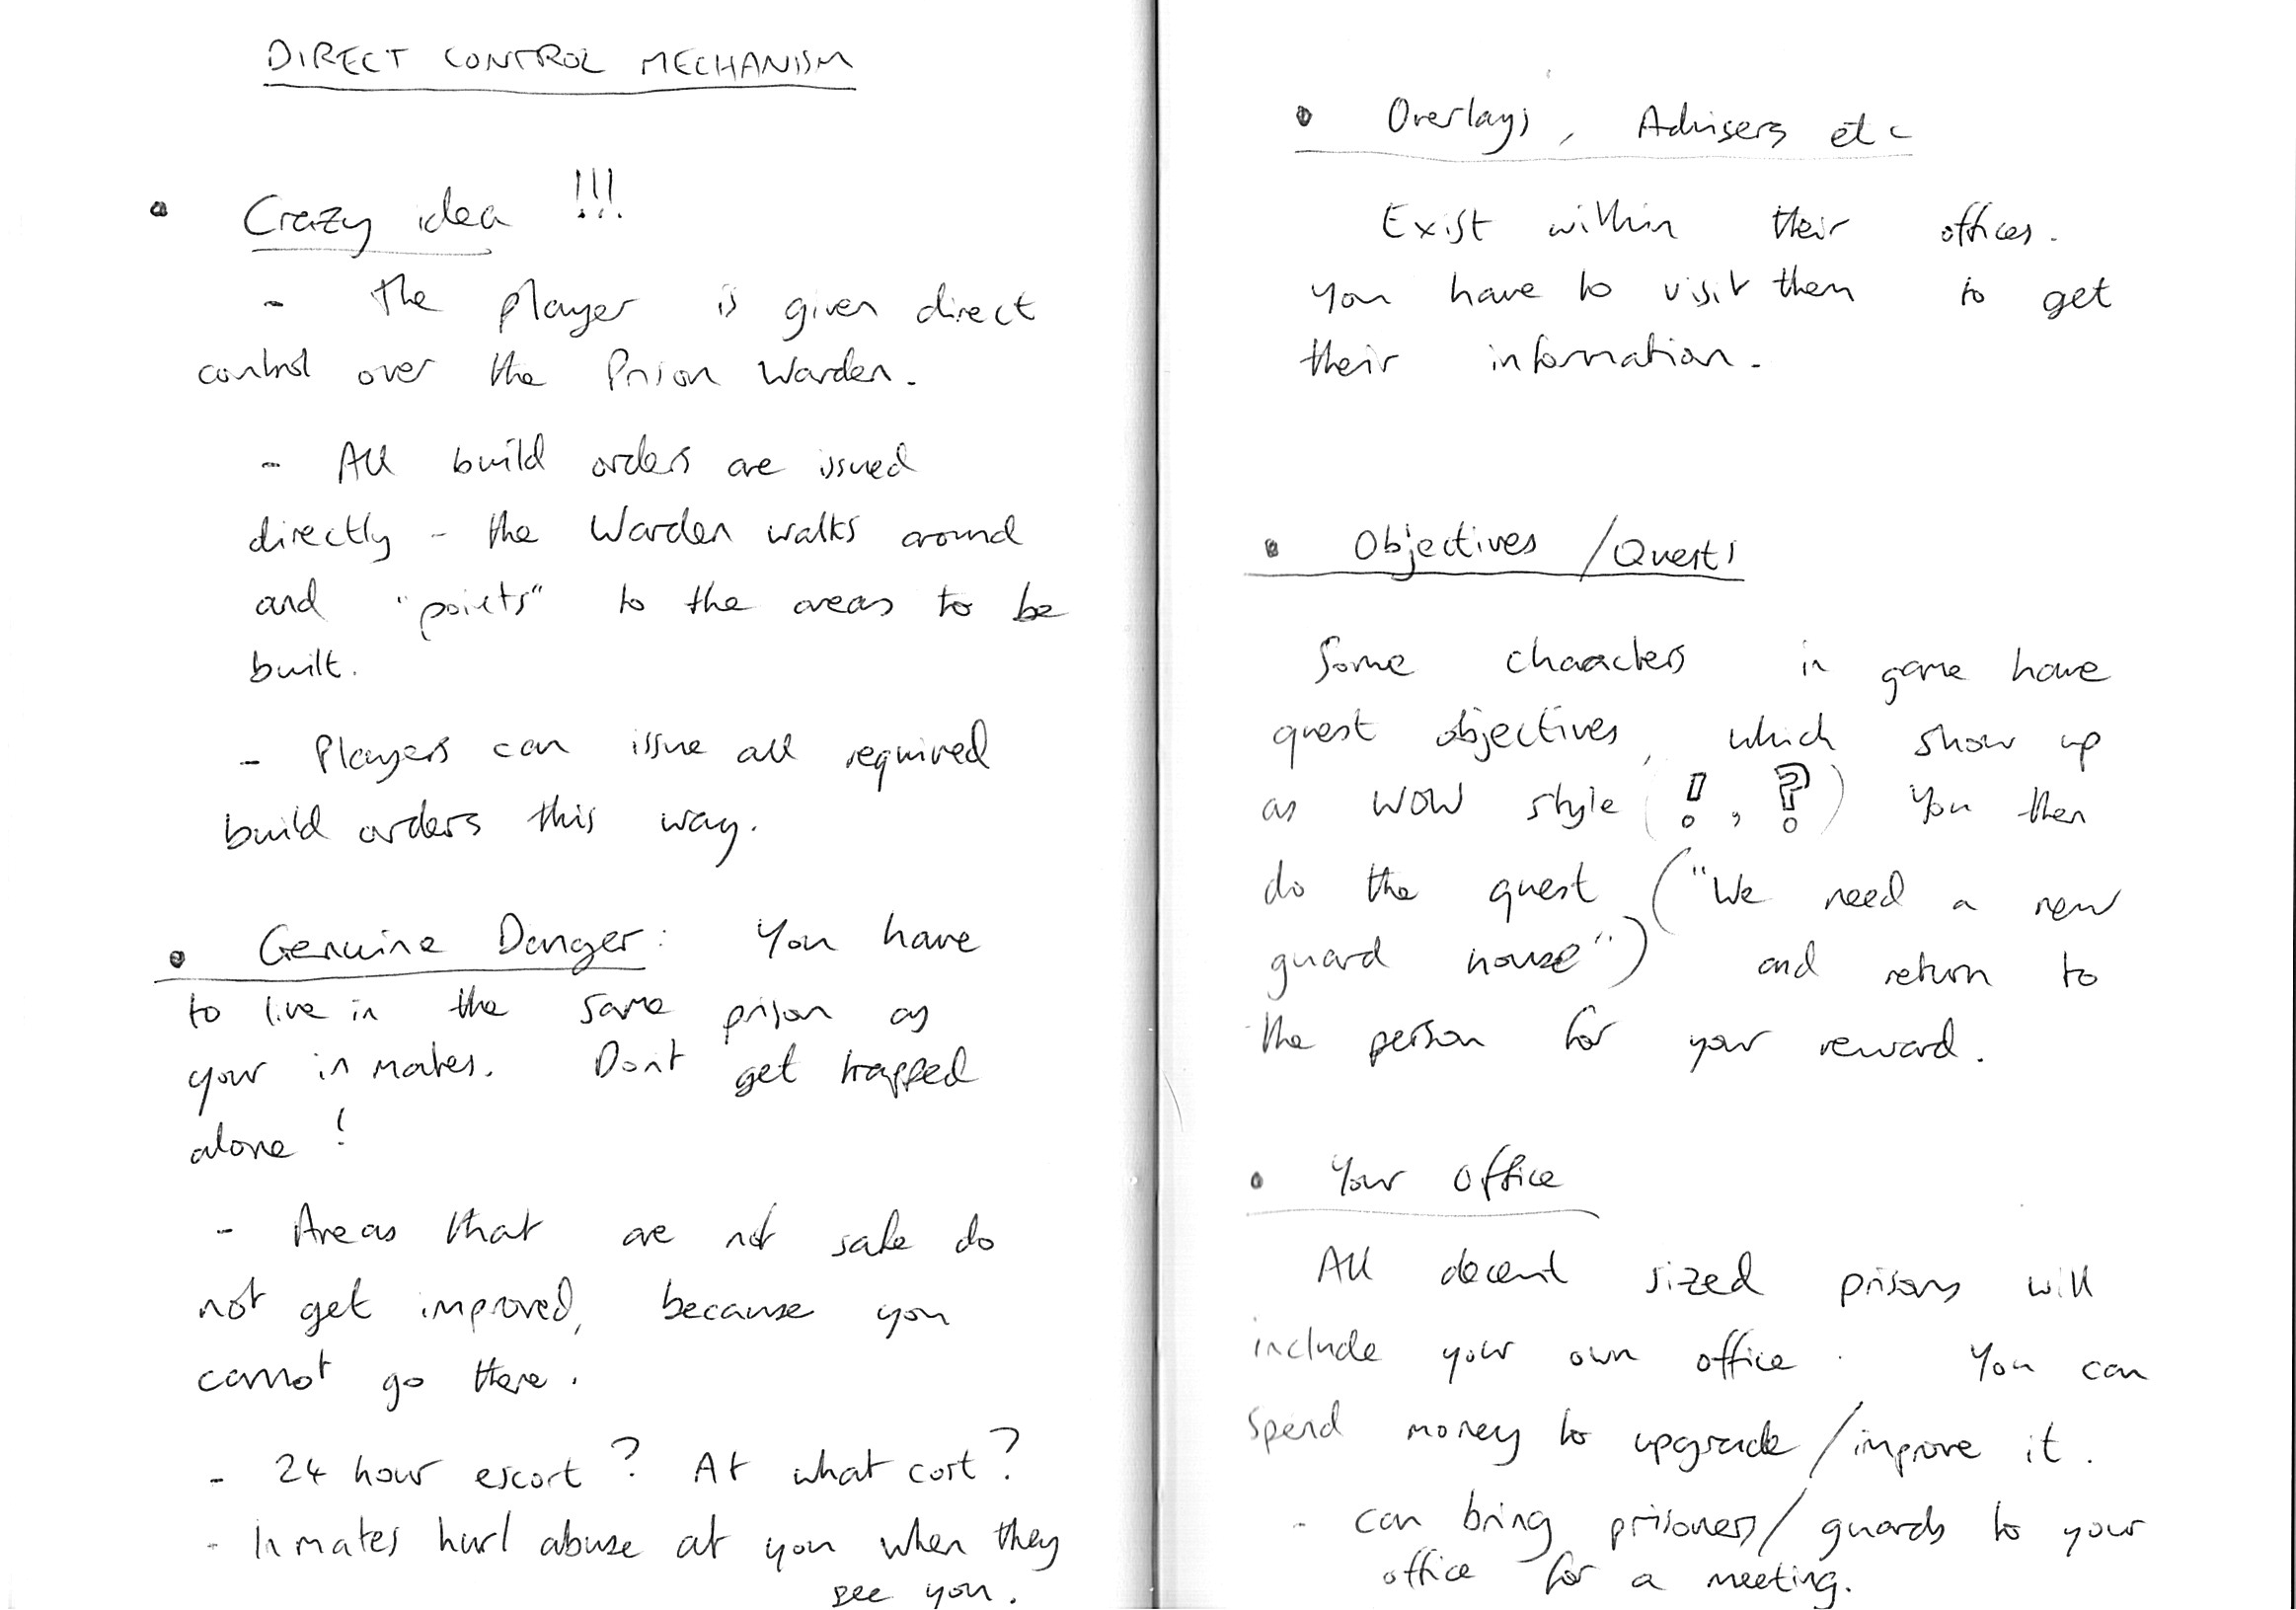 DIRECT CONTROL MECHANISM
• Crazy idea !!!
- The player is given direct
control over the Prison Warden.
- All build orders are issued
directly - the Warden walks around
and "points" to the areas to be
built.
- Players can issue all required
build orders this way.
• Genuine Danger: You have
to live in the same prison as
your inmates. Dont get trapped
alone!
- Areas that are not safe do
not get improved, because you
cannot go there.
- 24 hour escort? At what cost?
- Inmates hurl abuse at you when they
see you.
• Overlays, Advisers etc
Exist within their offices.
You have to visit them to get
their information.
• Objectives / Quests
Some characters in game have
quest objectives, which show up
as WOW style (!, ?) You then
do the quest ("We need a new
guard house") and return to
the person for your reward.
• Your office
All decent sized prisons will
include your own office. You can
spend money to upgrade / improve it.
- can bring prisoners / guards to your
office for a meeting.